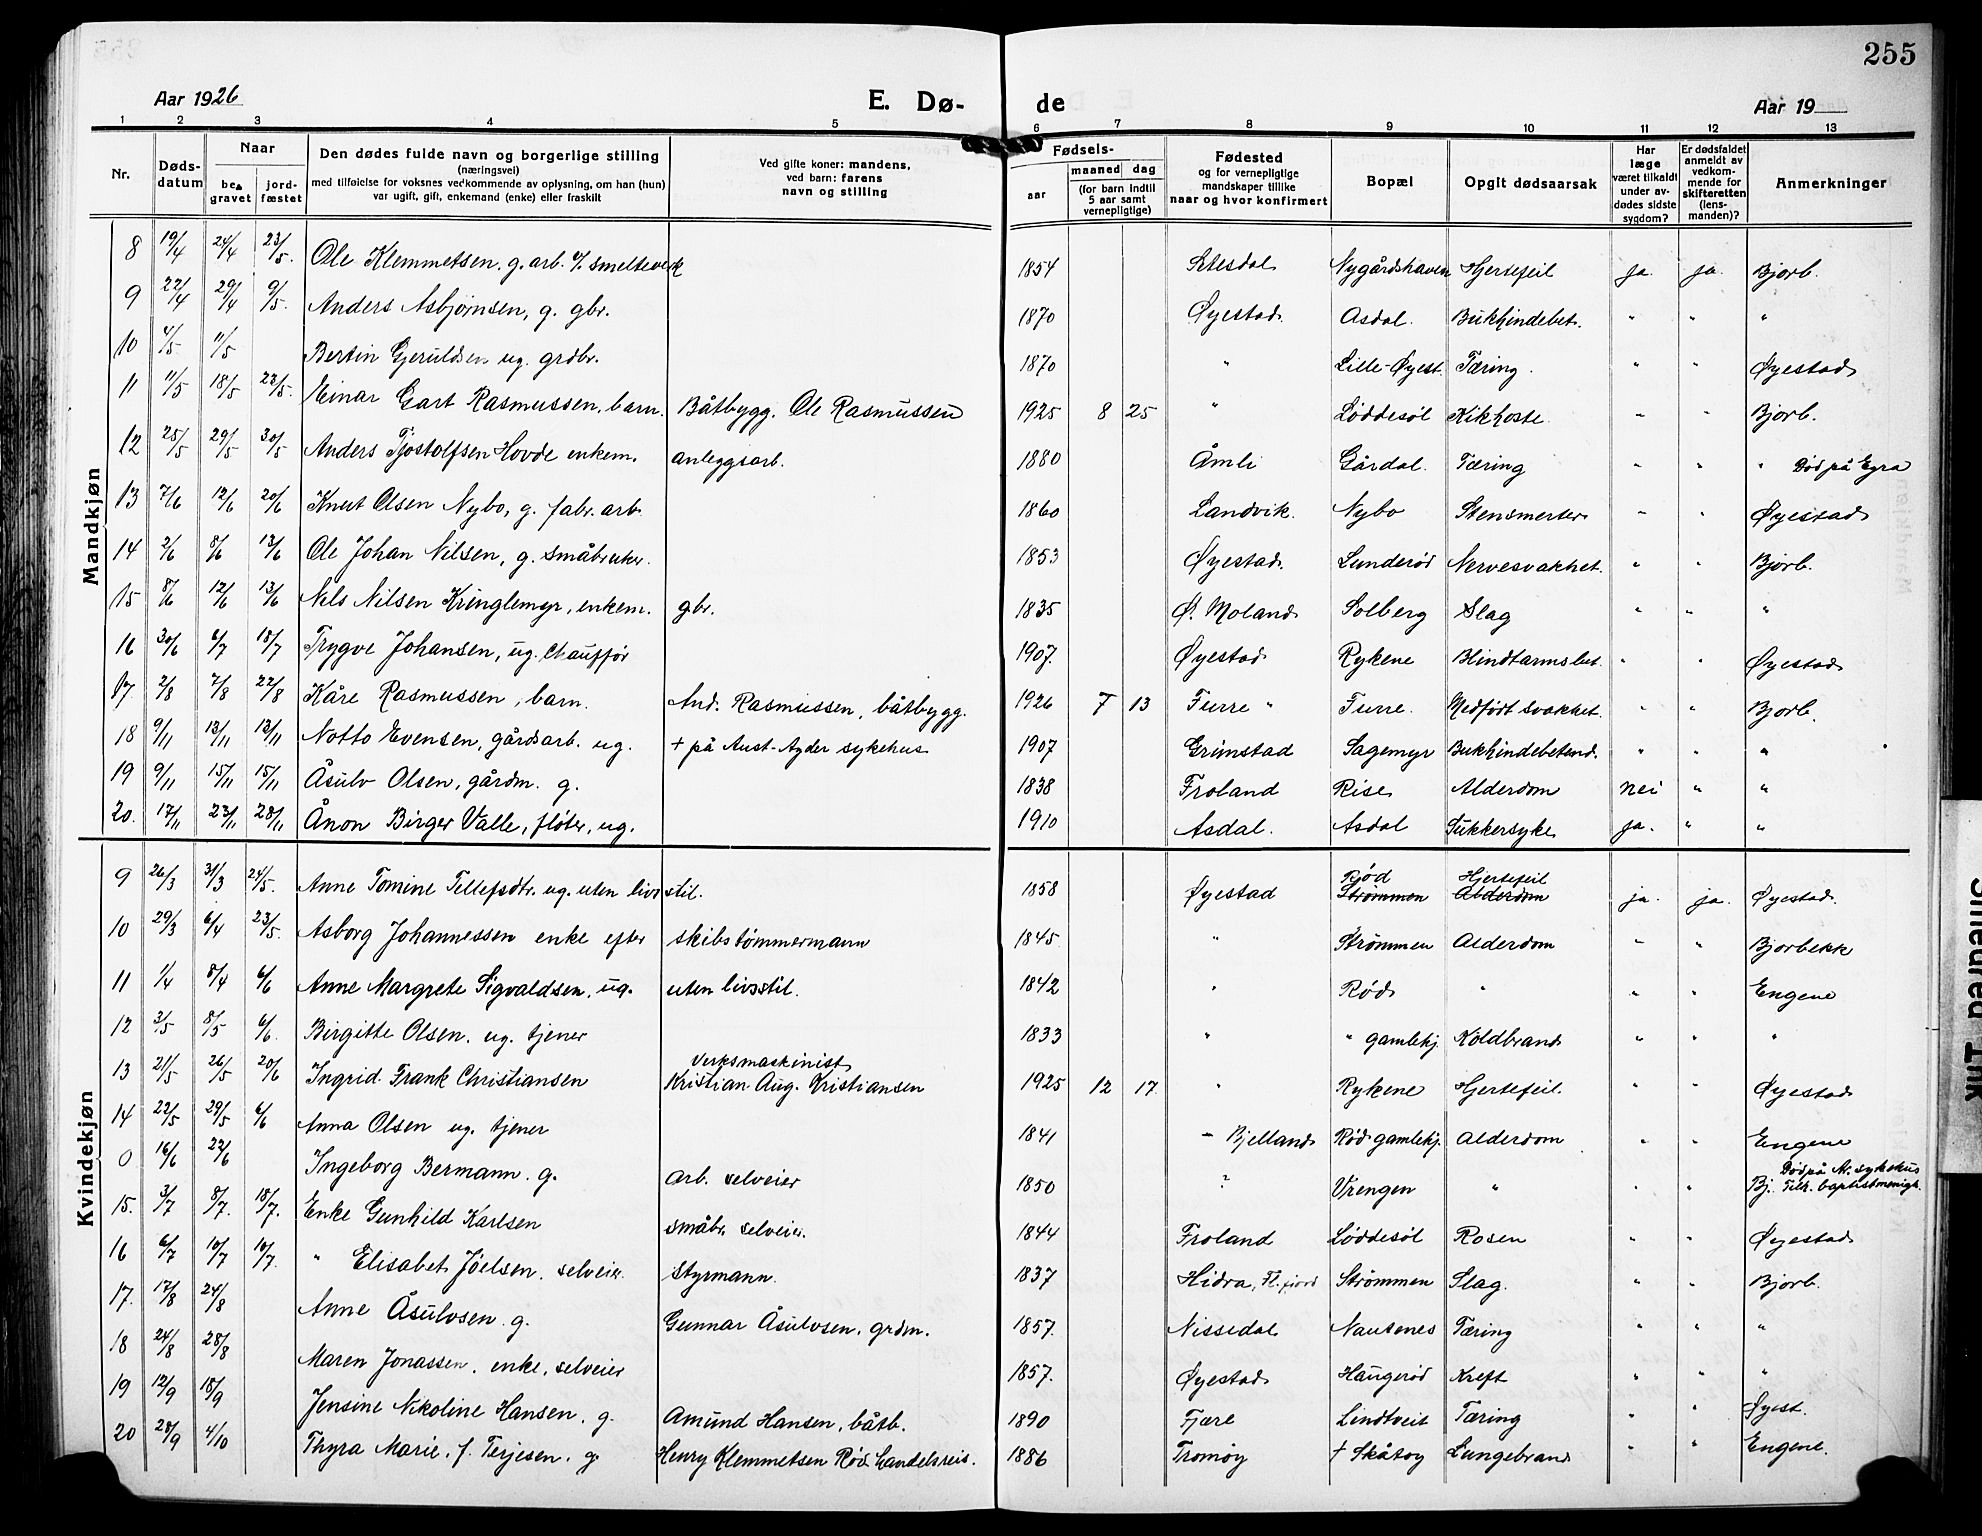 255
Aar 1926 E. Dø- de Aar 19
1 2 3 4 5 6 7 8 9 10 11 12 13
Nr. Døds-datum Naar be-gravet jord-fæstet Den dødes fulde navn og borgerlige stilling (næringsvei) med tilføielse for voksnes vedkommende av oplysning, om han (hun) var ugift, gift, enkemand (enke) eller fraskilt Ved gifte koner: mandens, ved barn: farens navn og stilling Fødsels- aar maaned dag (for barn indtil 5 aar samt vernepligtige) Fødested og for vernepligtige mandskaper tillike naar og hvor konfirmert Bopæl Opgit dødsaarsak Har læge været tilkaldt under av-dødes sidste sygdom? Er dødsfaldet anmeldt av vedkom-mende for skifteretten (lens-manden)? Anmerkninger
Mandkjøn
8 19/4 24/4 23/5. Ole Klemmetsen. g. arb. v/ smelteverk 1854 Setesdal Nygårdshaven Hjertefeil ja. ja. Bjorb.
9 22/4 29/4 9/5. Anders Asbjørnsen, g. gbr. 1870 Øyestad. Asdal. Bukhindebet. " " "
10 4/5 11/5 Bertin Gjeruldsen ug. grdbr. 1870 " Lille-Øyest. Tæring. " " Øyestad
11 11/5 18/5 23/5. Einar Gart Rasmussen, barn. Båtbygg. Ole Rasmussen 1925 8 25 " Løddesøl Kikhoste. " " Bjorb.
12 25/5 29/5 30/5 Anders Tjostolfsen Hovde enkem. anleggsarb. 1880 Åmli Gårdal. Tæring " " " Død på Eyra
13 7/6 12/6 20/6 Knut Olsen Nybo, g. fabr. arb. 1860 Landvik. Nybo Stensmerter " " Øyestad
14 2/6 8/6 13/6 Ole Johan Nilsen, g. småbruker. 1853 Øyestad. Lunderød Nervesvakhet. " " Bjorb.
15 8/6 12/6 13/6 Nels Nilsen Kringlemyr, enkem. gbr. 1835 Ø. Moland Solberg Slag " " "
16 30/6 6/7 18/7 Trygve Johansen, ug. Chauffør 1907. Øyestad Rykene Blindtarmsbet. " " Øyestad
17. 2/8 7/8 22/8 Kåre Rasmussen, barn. And. Rasmussen, båtbygg. 1926 7 13 Furre " Furre. Medført svakhet. " " Bjorb.
18 9/11 13/11 13/11 Notto Evensen, gårdsarb. ug. + på Aust-Agder sykehus 1907 Grimstad Sagemyr Bukhindebetend. " " "
19 9/11 15/11 15/11 Åsulv Olsen, gårdm. g. 1838 Froland Rise Alderdom nei " "
20. 17/11 23/11 28/11 Ånon Birger Valle, fløter, ug. 1910 Asdal. Asdal Sukkersyke ja. " "
Kvindekjøn
9 26/3 31/3 24/5. Anne Tomine Tellefsdtr. ug. uten livsstil. 1858 Øyestad Rød Strømmen Hjertefeil Alderdom ja. ja. Øyestad.
10 29/3 6/4 23/5. Asborg Johannessen enke efter skibstømmermann 1845. " Strømmen Alderdom " " Bjorbekk
11 1/4 8/4 6/6 Anne Margrete Sigvaldsen, ug. uten livsstil. 1842 " Rød " " " Engene
12 3/5 8/5 6/6. Birgitte Olsen. ug. tjener 1833 " " gamlehj. Koldbrand " " "
13 21/5 26/5 20/6 Ingrid Frank Christiansen Verksmaskinist Kristian Aug. Kristiansen 1925 12 17 " Rykene Hjertefeil. " " Øyestad
14 22/5 29/5 6/6 Anna Olsen ug. tjener 1841 - Bjelland Rød gamlehj. Alderdom " " Engene
0 16/6 22/6 Ingeborg Bermann. g. arb. selveier 1850 ? Vrengen " " " Død på Ar. sykehus Bj. Tilh. baptistmenigh.
15. 3/7 8/7. 18/7. Enke Gunhild Karlsen småbr. selveier. 1844 Froland Løddesøl Rosen " " Øyestad
16 6/7 10/7 10/7. " Elisabet Jöelsen. selveier. Styrmann. 1837 Hidra, Fl. fjord Strømmen Slag. " " Bjorb.
17. 17/8 24/8 Anne Åsulvsen. g. Gunnar Åsulvsen, grdm. 1857. Nissedal Nautenes Tæring " " "
18 24/8 28/8 Maren Jonassen. enke, selveier 1857. Øyestad Haugerød Kreft " " "
19 12/9 18/9 Jensine Nikoline Hansen. g. Amund Hansen, båtb. 1890 Fjære Lindtveit Tæring " " Øyest.
20 28/9 4/10 Thyra Marie, f. Terjesen. g. Henry Klemmetsen Rød Handelsreis. 1886 Tromøy + Skåtøy Lungebrand " " Engene.